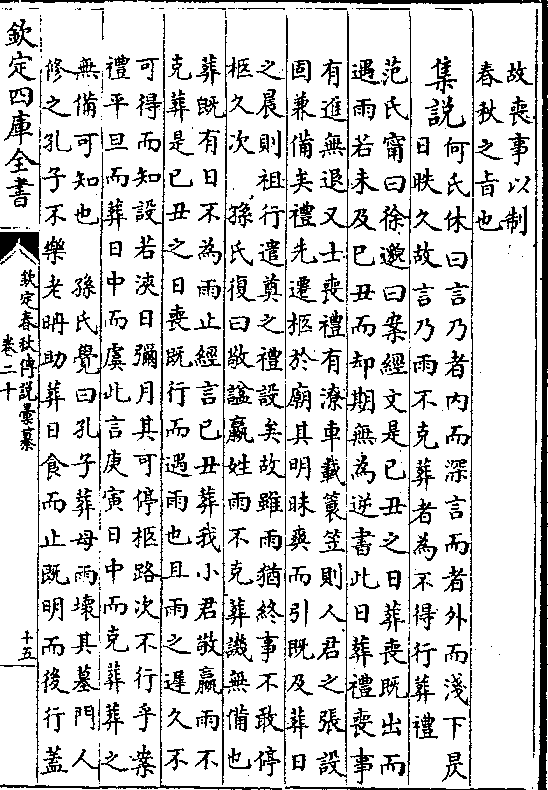 故喪事以制
春秋之旨也
集說
何氏休曰言乃者内而深言而者外而淺下昃
日昳久故言乃雨不克葬者為不得行葬禮
范氏甯曰徐邈曰案經文是已丑之日葬喪既出而
遇雨若未及已丑而却期無為逆書此日葬禮喪事
有進無退又士喪禮有潦車載簑笠則人君之張設
固兼備矣禮先遷柩於廟其明昧爽而引既及葬日
之晨則祖行遣奠之禮設矣故雖雨猶終事不敢停
柩久次　孫氏復曰敬諡嬴姓雨不克葬譏無備也
葬既有日不為雨止經言已丑葬我小君敬嬴雨不
克葬是已丑之日喪既行而遇雨也且雨之遲久不
可得而知設若浹日彌月其可停柩路次不行乎案
禮平旦而葬日中而虞此言庚寅日中而克葬葬之
無備可知也　孫氏覺曰孔子葬母雨壞其墓門人
修之孔子不樂老聃助葬日食而止既明而後行蓋
欽定四庫全書
欽定春秋傳說彙纂
卷二十
十五